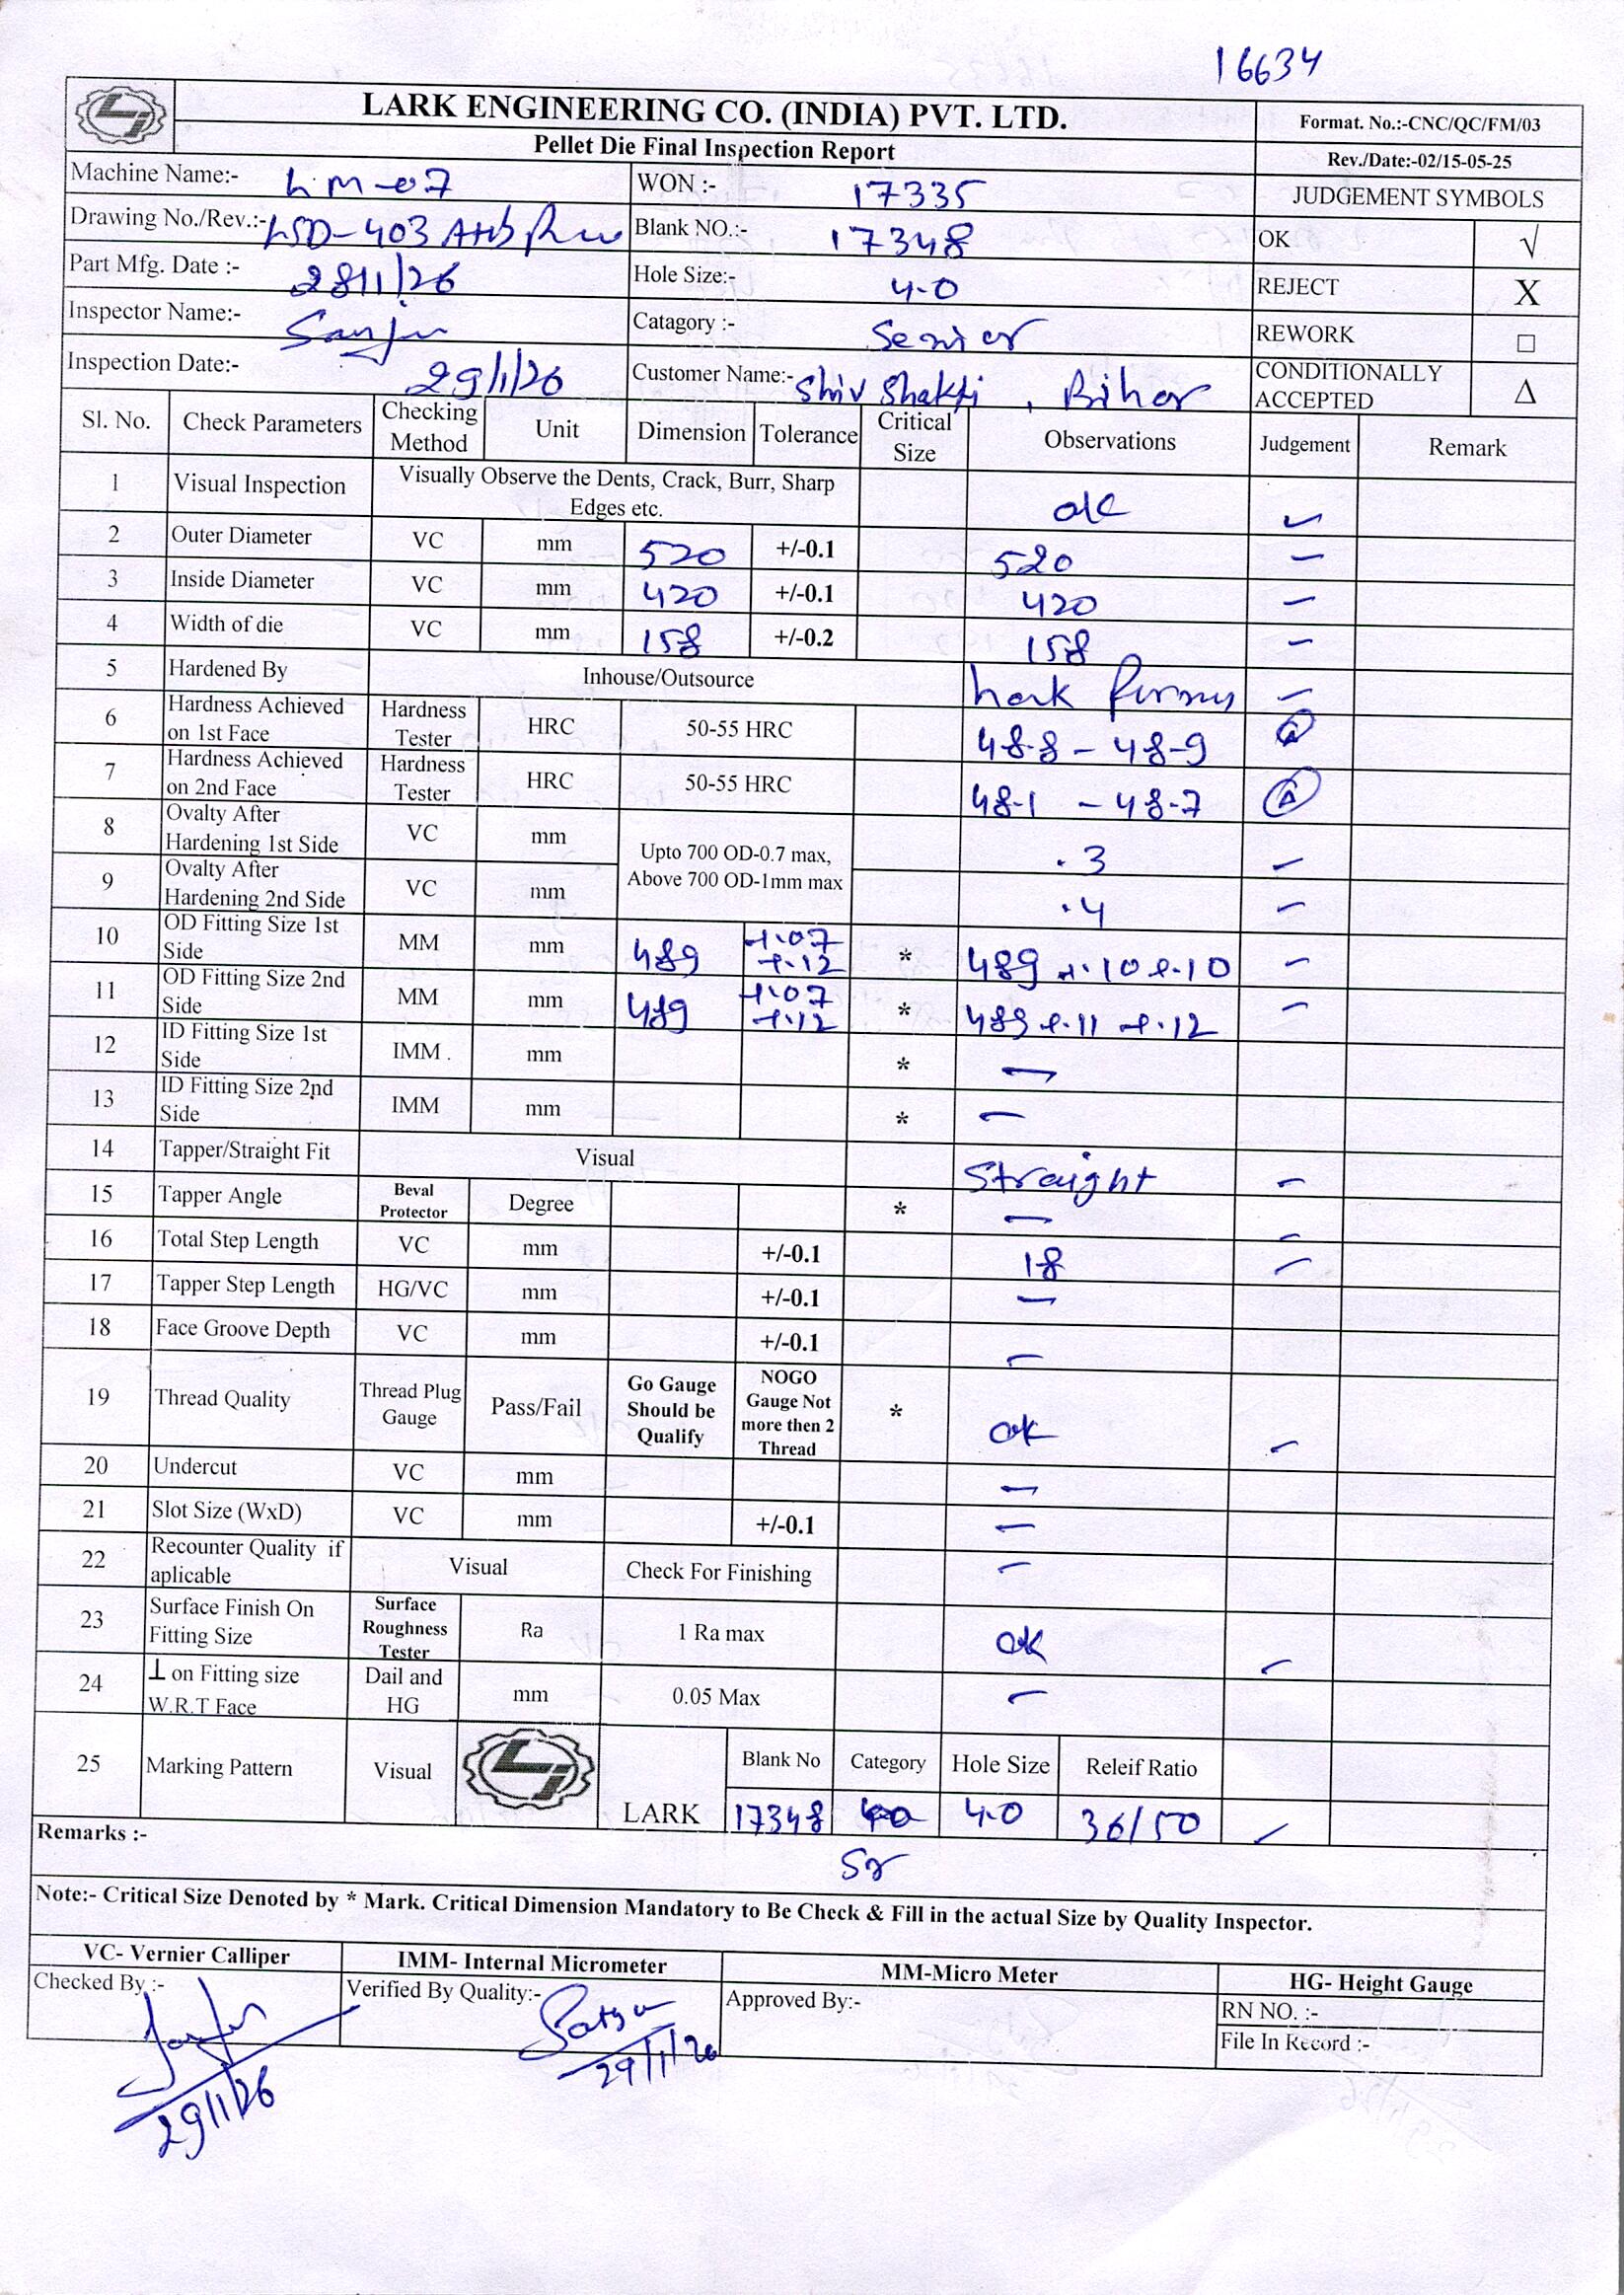 16634
LARK ENGINEERING CO. (INDIA) PVT. LTD.
Format. No.:-CNC/QC/FM/03
Pellet Die Final Inspection Report
Rev./Date:-02/15-05-25
Machine Name:- LM-07 WON :- 17335 JUDGEMENT SYMBOLS
Drawing No./Rev.:- LSD-403 Blank NO.:- 17348 OK √
Part Mfg. Date :- 28/1/26 Hole Size:- 4.0 REJECT X
Inspector Name:- Sanju Catagory :- Senior REWORK □
Inspection Date:- 29/1/26 Customer Name:- Shiv Shakti, Bihar CONDITIONALLY ACCEPTED Δ
Sl. No. Check Parameters Checking Method Unit Dimension Tolerance Critical Size Observations Judgement Remark
1 Visual Inspection Visually Observe the Dents, Crack, Burr, Sharp Edges etc. ok ✓
2 Outer Diameter VC mm 520 +/-0.1 520 –
3 Inside Diameter VC mm 420 +/-0.1 420 –
4 Width of die VC mm 158 +/-0.2 158 –
5 Hardened By Inhouse/Outsource –
6 Hardness Achieved on 1st Face Hardness Tester HRC 50-55 HRC 48.8 – 48.9
7 Hardness Achieved on 2nd Face Hardness Tester HRC 50-55 HRC 48.1 – 48.7 Δ
8 Ovalty After Hardening 1st Side VC mm Upto 700 OD-0.7 max, Above 700 OD-1mm max .3 –
9 Ovalty After Hardening 2nd Side VC mm .4 –
10 OD Fitting Size 1st Side MM mm 489 +.07 +.12 * 489 +.10 +.10 –
11 OD Fitting Size 2nd Side MM mm 489 +.07 +.12 * 489 +.11 +.12 –
12 ID Fitting Size 1st Side IMM . mm * –
13 ID Fitting Size 2nd Side IMM mm * –
14 Tapper/Straight Fit Visual Straight –
15 Tapper Angle Beval Protector Degree * – –
16 Total Step Length VC mm +/-0.1 18 –
17 Tapper Step Length HG/VC mm +/-0.1 –
18 Face Groove Depth VC mm +/-0.1 –
19 Thread Quality Thread Plug Gauge Pass/Fail Go Gauge Should be Qualify NOGO Gauge Not more then 2 Thread * ok –
20 Undercut VC mm –
21 Slot Size (WxD) VC mm +/-0.1 –
22 Recounter Quality if aplicable Visual Check For Finishing –
23 Surface Finish On Fitting Size Surface Roughness Tester Ra 1 Ra max ok –
24 ⊥ on Fitting size W.R.T Face Dail and HG mm 0.05 Max –
25 Marking Pattern Visual LARK Blank No Category Hole Size Releif Ratio
17348 4.0 36/50 ✓
Remarks :- Sr
Note:- Critical Size Denoted by * Mark. Critical Dimension Mandatory to Be Check & Fill in the actual Size by Quality Inspector.
VC- Vernier Calliper IMM- Internal Micrometer MM-Micro Meter HG- Height Gauge
Checked By :- Sanju Verified By Quality:- Approved By:- RN NO. :-
File In Record :-
29/1/26 29/1/26